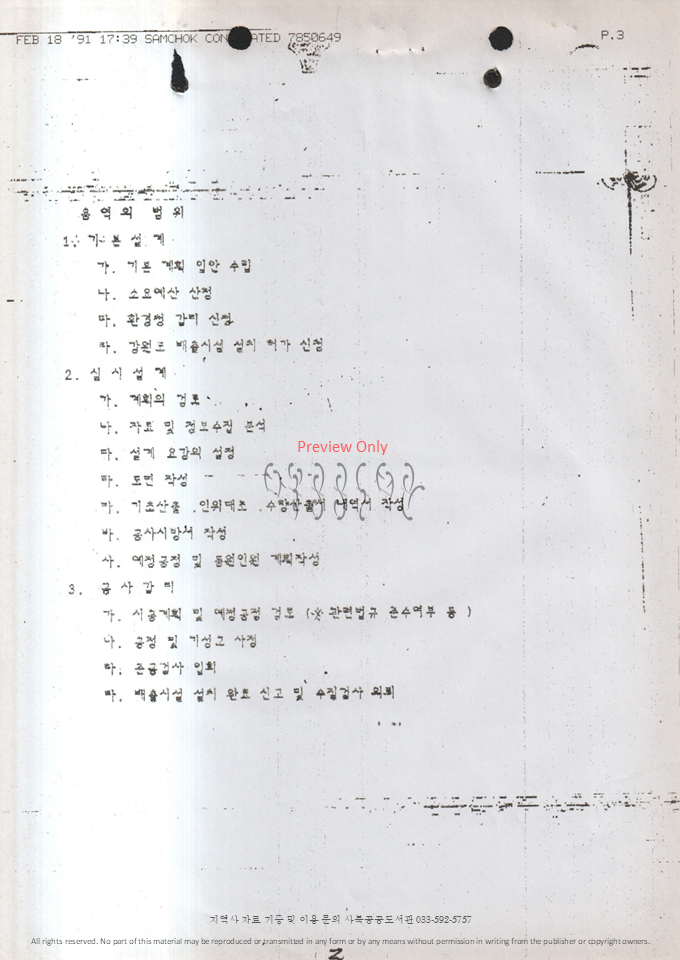 FEB 18 '91 17:39 SAMCHOK CON ATED 7850649 P.3
용역의 범위
1. 기본설계
가. 기본 계획 입안 수립
나. 소요예산 산정
다. 환경청 관리 신청
라. 강원도 배출시설 설치 허가 신청
2. 실시설계
가. 계획의 검토
나. 자료 및 정보수집 분석
다. 설계 요강의 설정
라. 도면 작성
마. 기초산출, 인원대조, 수량산출서 내역서 작성
바. 공사시방서 작성
사. 예정공정 및 동원인원 계획작성
3. 공사감리
가. 시공계획 및 예정공정 검토 ( 준수여부 등 )
나. 공정 및 기성고 사정
다. 준공검사 입회
라. 배출시설 설치 완료 신고 및 수질검사 의뢰
Preview Only
지역사 자료 기증 및 이용 문의 사북공공도서관 033-592-5757
All rights reserved. No part of this material may be reproduced or transmitted in any form or by any means without permission in writing from the publisher or copyright owners.
2